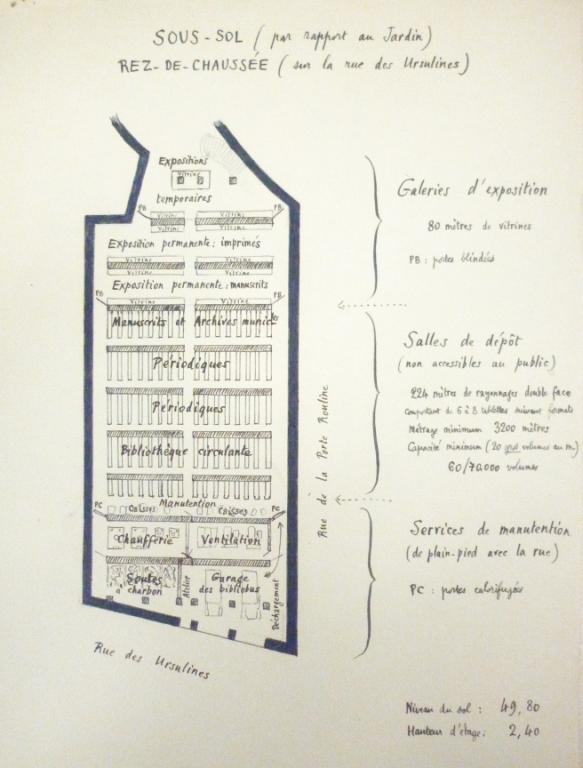 SOUS-SOL (par rapport au Jardin)
REZ-DE-CHAUSSÉE (sur la rue des Ursulines)
Expositions
Vitrine
temporaires
PB
PB
Vitrine
Vitrine
Vitrine
Vitrine
Exposition permanente: imprimés
Vitrine
Vitrine
Vitrine
Vitrine
Exposition permanente: manuscrits
PB
PB
Vitrine
Vitrine
Manuscrits et Archives municles
Périodiques
Périodiques
Bibliothèque circulante
Manutention
PC
Caisses
Caisses
PC
Chaufferie
Ventilation
Soutes
à charbon
Atelier
Garage
des bibliobus
Déchargement
Rue des Ursulines
Rue de la Porte Pouline
Galeries d'exposition
80 mètres de vitrines
PB : portes blindées
Salles de dépôt
(non accessibles au public)
224 mètres de rayonnages double face
comportant de 6 à 8 tablettes suivant formats
Métrage minimum 3200 mètres
Capacité minimum (20 gros volumes au m.)
60/70.000 volumes
Services de manutention
(de plain-pied avec la rue)
PC : portes calorifugées
Niveau du sol : 49,80
Hauteur d'étage: 2,40